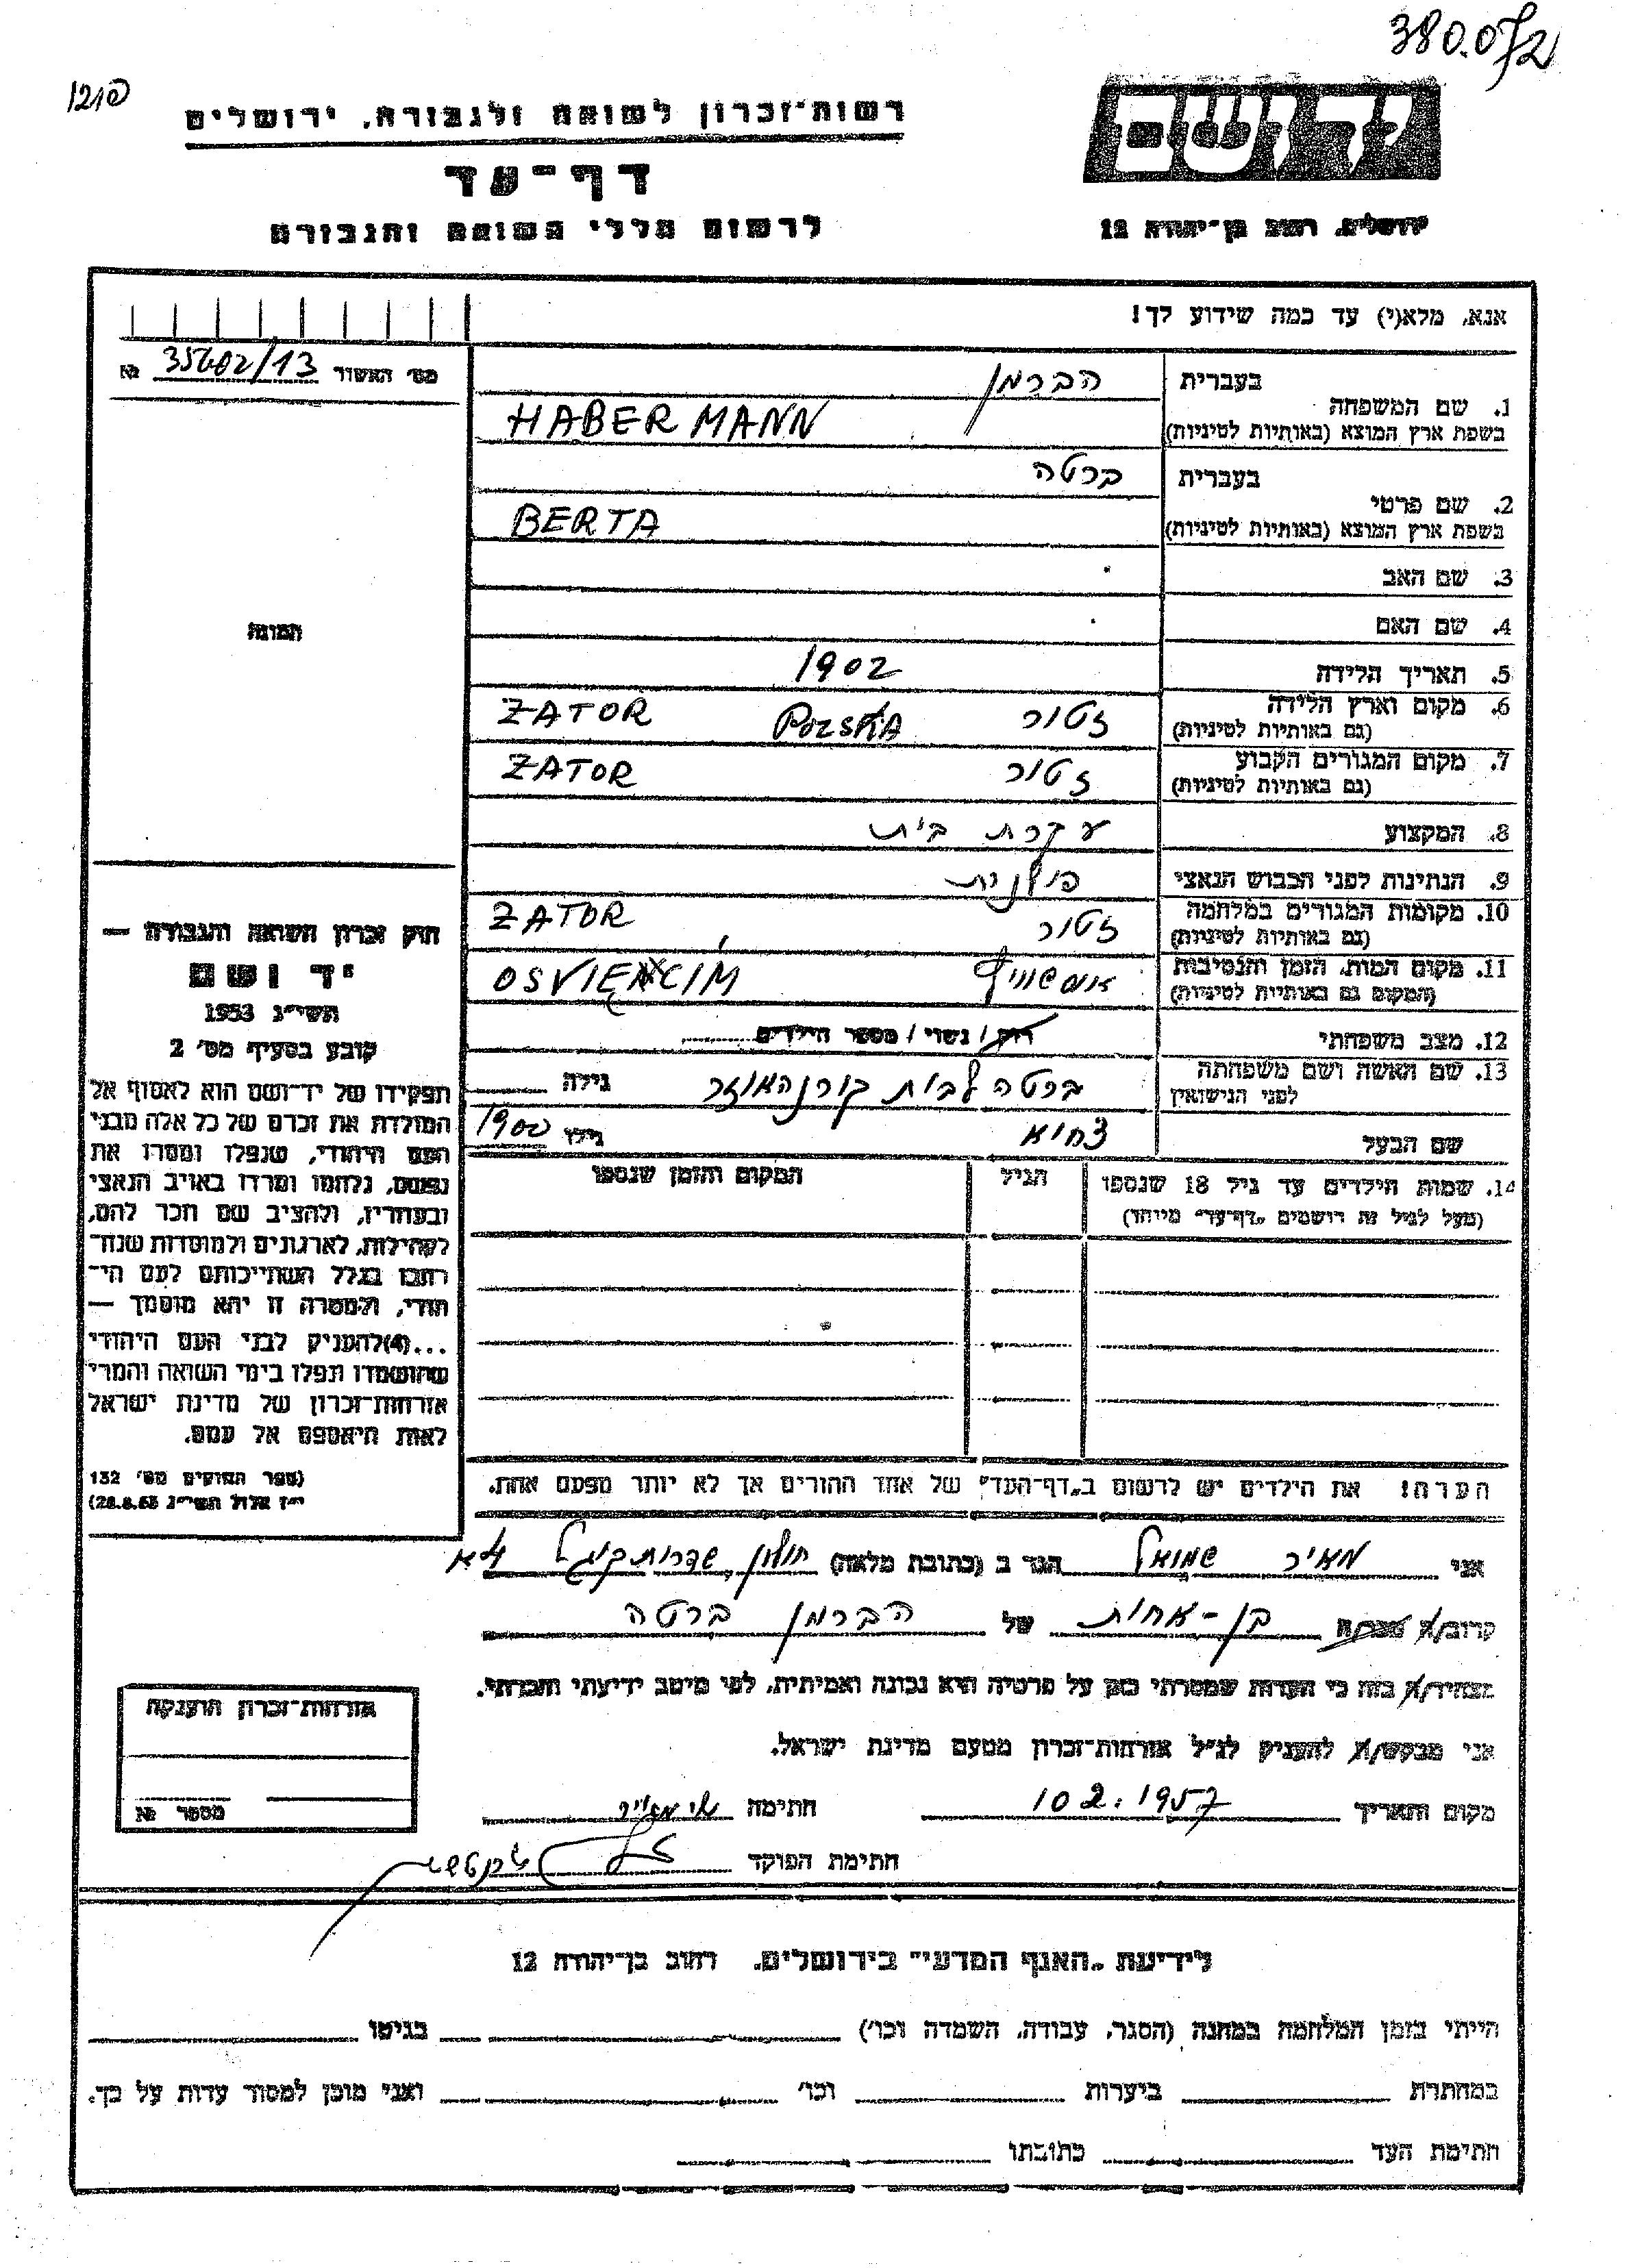 380.072
פ121
ידושם
רשות־זכרון לשואה ולגבורה, ירושלים
דף־עד
לרשום חללי השואה והגבורה
ירושלים, רחוב בן־יהודה 12
אנא, מלא(י) עד כמה שידוע לך!
מס' האשור 35602/13 №
1. שם המשפחה
בעברית הברמן
בשפת ארץ המוצא (באותיות לטיניות) HABERMANN
2. שם פרטי
בעברית ברטה
בשפת ארץ המוצא (באותיות לטיניות) BERTA
3. שם האב
4. שם האם
5. תאריך הלידה 1902
6. מקום וארץ הלידה זטור POLSKA ZATOR
(גם באותיות לטיניות)
7. מקום המגורים הקבוע זטור ZATOR
(גם באותיות לטיניות)
8. המקצוע עקרת בית
9. הנתינות לפני הכבוש הנאצי פולנית
10. מקומות המגורים במלחמה זטור ZATOR
(גם באותיות לטיניות)
11. מקום המות, הזמן והנסיבות אושוויץ OSVIENCIM
(המקום גם באותיות לטיניות)
12. מצב משפחתי רוק / נשוי / מספר הילדים
13. שם האשה ושם משפחתה ברטה לבית קורנהאוזר גילה
לפני הנישואין
שם הבעל גילו 1900
14. שמות הילדים עד גיל 18 שנספו הגיל המקום והזמן שנספו
(מעל לגיל זה רושמים „דף־עד" מיוחד)
הערה! את הילדים יש לרשום ב„דף־העד" של אחד ההורים אך לא יותר מפעם אחת.
התמונה
חוק זכרון השואה והגבורה —
יד ושם
תשי"ג 1953
קובע בסעיף מס' 2
תפקידו של יד־ושם הוא לאסוף אל
המולדת את זכרם של כל אלה מבני
העם היהודי, שנפלו ומסרו את
נפשם, נלחמו ומרדו באויב הנאצי
ובעוזריו, ולהציב שם וזכר להם,
לקהילות, לארגונים ולמוסדות שנח־
רבו בגלל השתייכותם לעם הי־
הודי, ולמטרה זו יהא מוסמך —
...(4)להעניק לבני העם היהודי
שהושמדו ונפלו בימי השואה והמרי
אזרחות־זכרון של מדינת ישראל
לאות היאספם אל עמם.
(ספר החוקים מס' 132
י"ז אלול תשי"ג 28.8.53)
אני מאיר שמואל הגר ב (כתובת מלאה) חולון, שדרות קוגל
קרוב/ה מכר/ה בן-אחות של הברמן ברטה
מצהיר/ה בזה כי העדות שמסרתי כאן על פרטיה היא נכונה ואמיתית, לפי מיטב ידיעתי והכרתי.
אני מבקש/ת להעניק לנ"ל אזרחות־זכרון מטעם מדינת ישראל.
מקום ותאריך 10 2. 1957 חתימה ש. מאיר
חתימת הפוקד
אזרחות־זכרון הוענקה
מספר №
לידיעת „האגף המדעי" בירושלים, רחוב בן־יהודה 12
הייתי בזמן המלחמה במחנה (הסגר, עבודה, השמדה וכו') בגיטו
במחתרת ביערות וכו' ואני מוכן למסור עדות על כך.
חתימת העד כתובתו